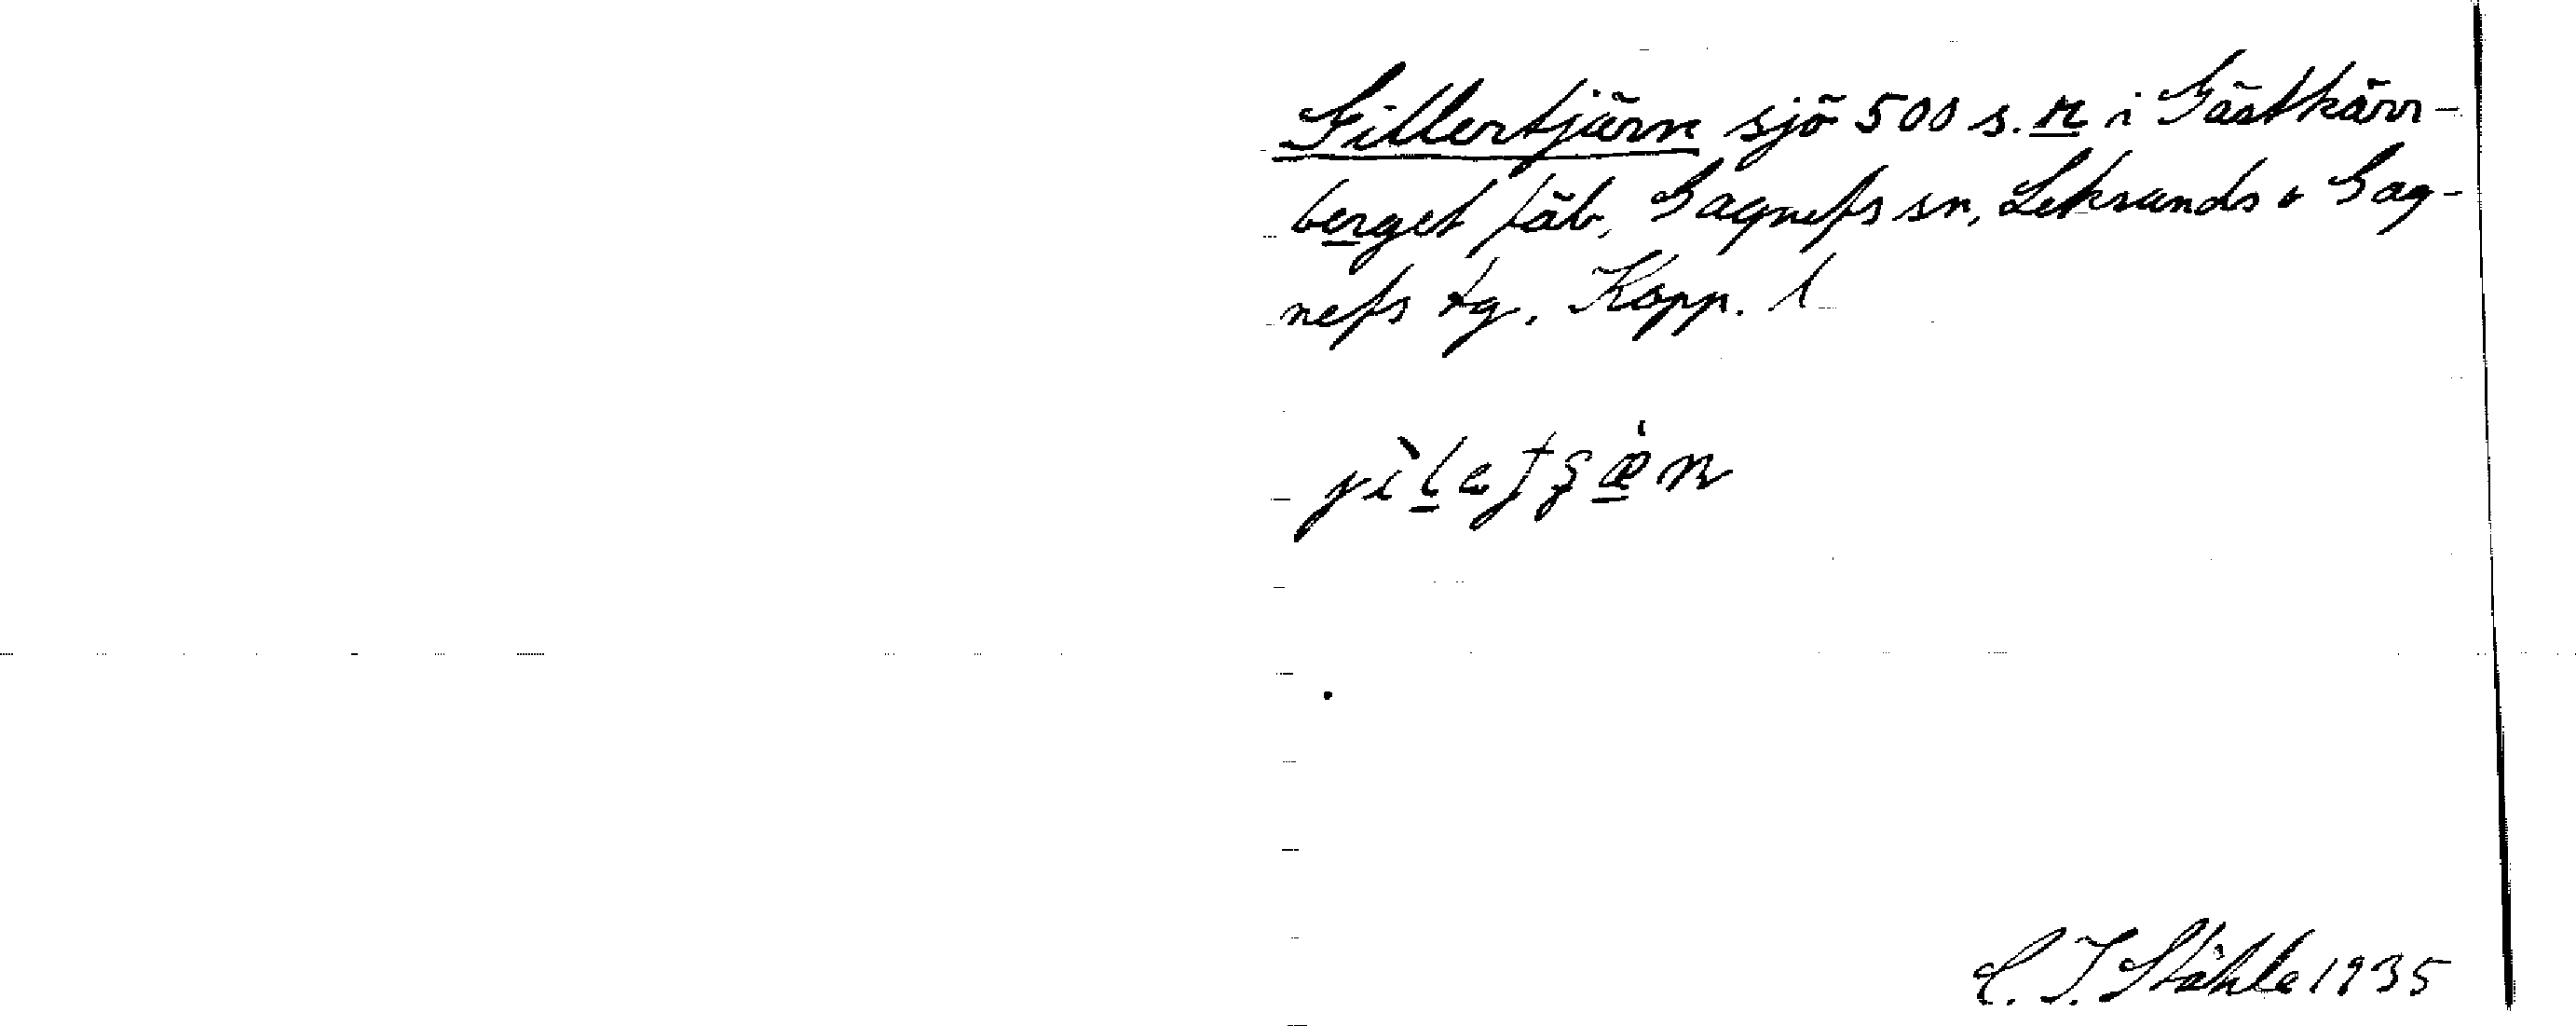 Gillertjärn sjö 500 s. n i Gästkärr-
berget fäb, Gagnefs sn, Leksands o Gag-
nefs tg. Kopp. l
C. I. Ståhle 1935